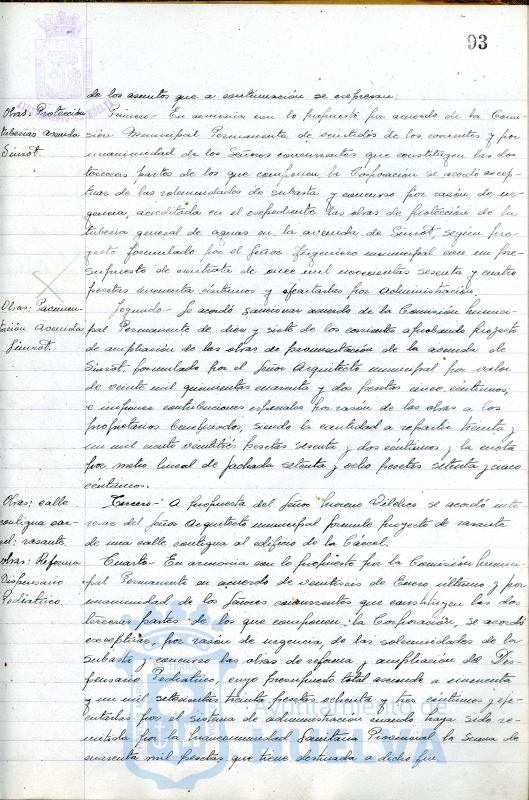 93
de los asuntos que a continuación se expresan:
Obras: Protección
tuberías avenida
Siurot.
Primero - En armonía con lo propuesto por acuerdo de la Comi-
sión Municipal Permanente de de los corrientes y por
unanimidad de los Señores concurrentes que constituyen las dos
terceras partes de los que componen la Corporación se acordó excep-
tuar de las solemnidades de subasta y concurso por razón de ur-
gencia, acreditada en el expediente las obras de protección de la
tubería general de aguas en la avenida de Siurot, según pro-
yecto formulado por el Señor Ingeniero municipal con un pre-
supuesto de contrata de once mil novecientas sesenta y cuatro
pesetas cincuenta céntimos y ejecutarlas por Administración.
Obras: Pavimen-
tación avenida
Siurot.
Segundo - Se acordó sancionar acuerdo de la Comisión Munici-
pal Permanente de diez y siete de los corrientes aprobando proyecto
de ampliación de las obras de pavimentación de la avenida de
Siurot, formulado por el Señor Arquitecto municipal por valor
de veinte mil quinientas cuarenta y dos pesetas cinco céntimos,
e imponer contribuciones especiales por razón de las obras a los
propietarios beneficiados, siendo la cantidad a repartir treinta y
un mil ciento veintitrés pesetas sesenta y dos céntimos y la cuota
por metro lineal de fachada setenta y ocho pesetas setenta y cinco
céntimos.
Obras: calle
contigua car-
cel: rasante
Tercero - A propuesta del Señor Moreno Vílchez se acordó inte-
resar del Señor Arquitecto municipal formule proyecto de rasante
de una calle contigua al edificio de la Cárcel.
Obras: Reforma
Dispensario
Pediatrico.
Cuarto - En armonía con lo propuesto por la Comisión Munici-
pal Permanente en acuerdo de veintiseis de Enero último y por
unanimidad de los Señores concurrentes que constituyen las dos
terceras partes de los que componen la Corporación, se acordó
exceptuar, por razón de urgencia, de las solemnidades de la
subasta y concurso las obras de reforma y ampliación del Dis-
pensario Pediatrico, cuyo presupuesto total asciende a cincuenta
y un mil setecientas treinta pesetas ochenta y tres céntimos y eje-
cutarlas por el sistema de administración cuando haya sido re-
mitida por la Mancomunidad Sanitaria Provincial la suma de
cuarenta mil pesetas que tiene destinada a dicho fin
Ayuntamiento de
HUELVA